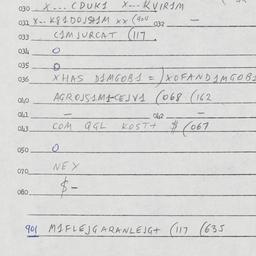 030 X--- CDUK1 X--- KVIR1M
031 X-- K$1DOJ$1M XX (904 032 –
033 C1MJURCAT (117
034 0
035 0
036 XHAS D1MGOB1 = ) XOFAND1MGOB1
040 AGROJS1M1CEJV1 (068 (162
041 – 042 –
043 COM QGL KOST+ $ (067
050 0
070 NEX
080 $-
901 M1FLEJGARANLEJG+ (117 (635